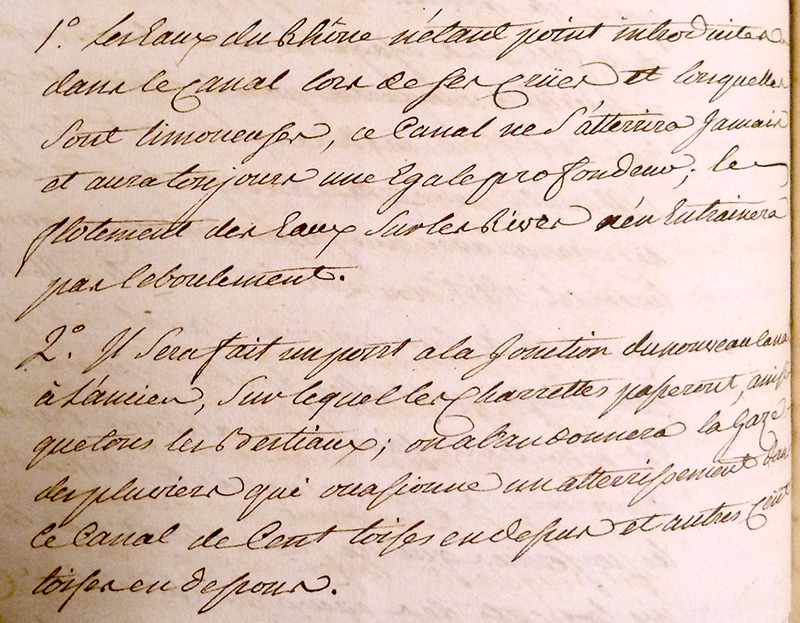 1.° Les Eaux du Rhône n'étant point introduites
dans le Canal lors de ses Crües et lorsquelles
sont limoneuses, ce Canal ne s'atterrira Jamais
et aura toujours une Egale profondeur; le
flotement des Eaux sur les Rives n'en Entrainera
pas l'eboulement.
2.° Il sera fait un pont a la Jonction du nouveau Canal
à L'ancien, sur lequel les Charrettes passeront, ainsi
que tous les Bestiaux; on abandonnera la Gaze
des pluviers qui occasionne un atterrissement dans
le Canal de Cent toises en dessus et autres Cent
toises en dessous.